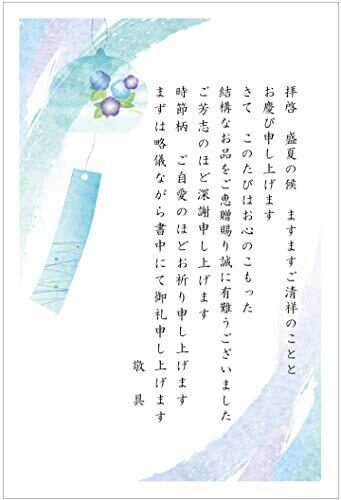 拝啓　盛夏の候　ますますご清祥のことと
お慶び申し上げます
さて　このたびはお心のこもった
結構なお品をご恵贈賜り誠に有難うございました
ご芳志のほど深謝申し上げます
時節柄　ご自愛のほどお祈り申し上げます
まずは略儀ながら書中にて御礼申し上げます
敬具